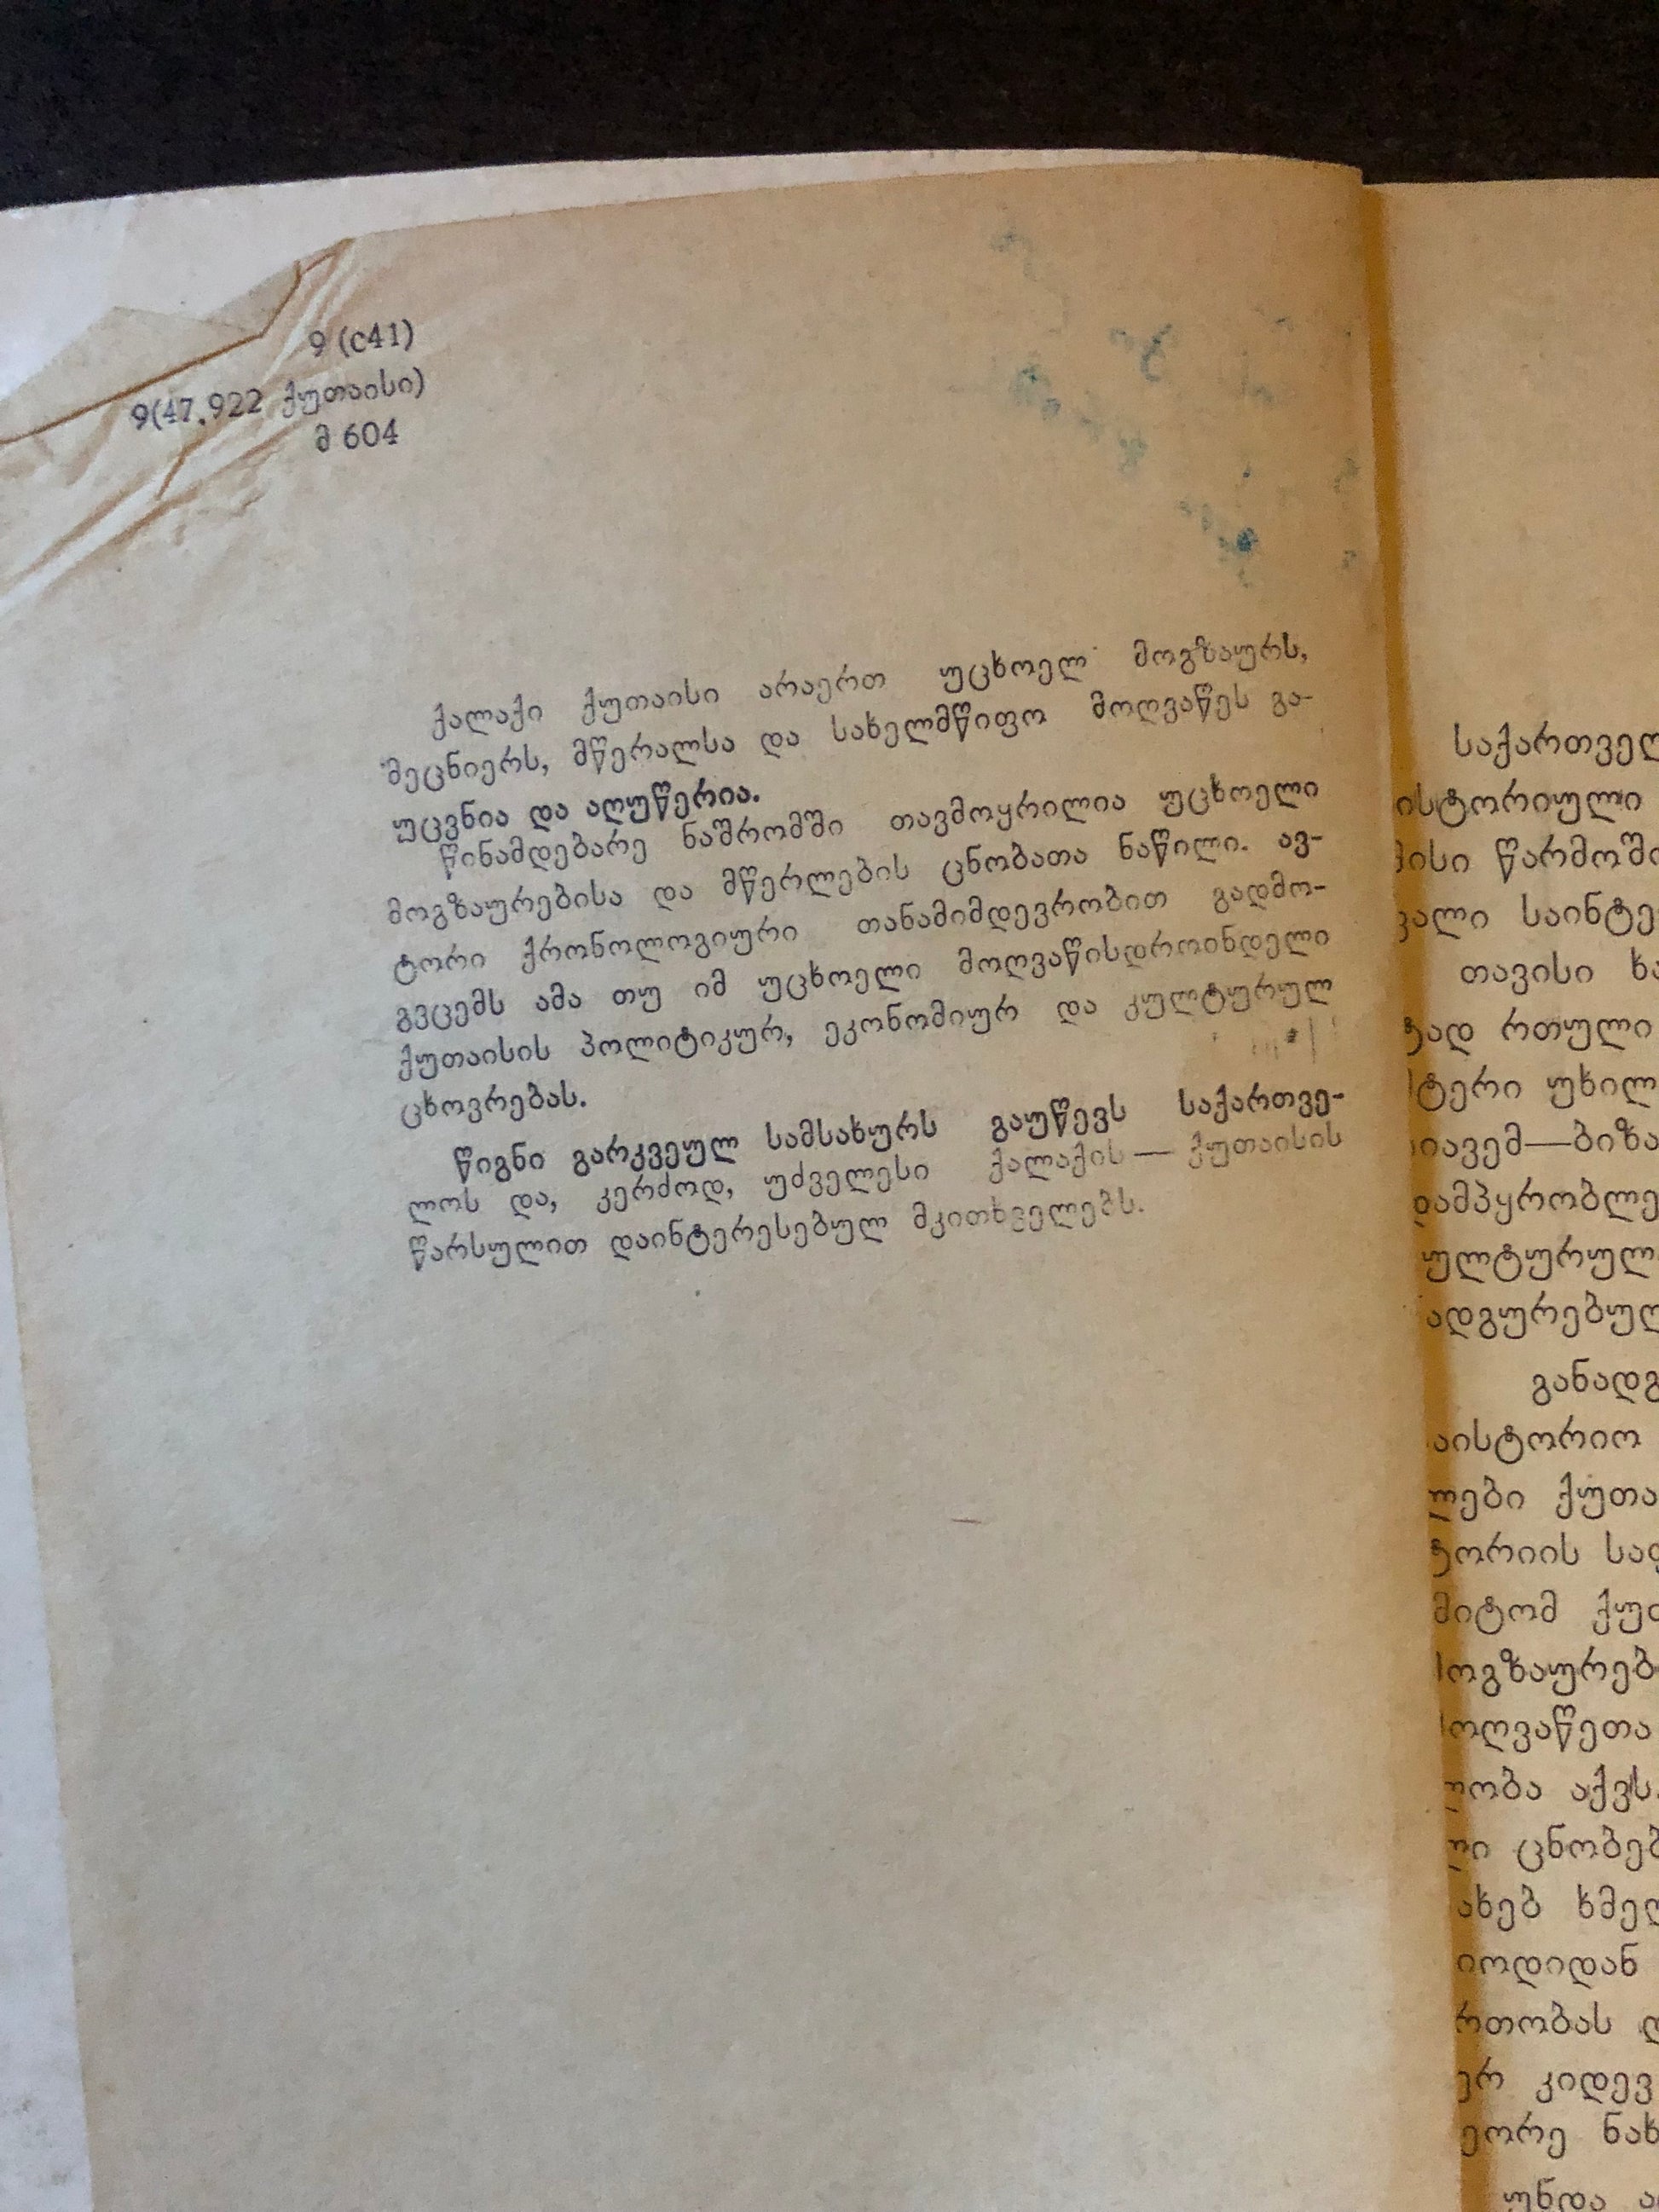 9 (с41)
9(47.922 ქუთაისი)
მ 604
ქალაქი ქუთაისი არაერთ უცხოელ მოგზაურს,
მეცნიერს, მწერალსა და სახელმწიფო მოღვაწეს გა-
უცვნია და აღუწერია.
წინამდებარე ნაშრომში თავმოყრილია უცხოელი
მოგზაურებისა და მწერლების ცნობათა ნაწილი. ავ-
ტორი ქრონოლოგიური თანამიმდევრობით გადმო-
გვცემს ამა თუ იმ უცხოელი მოღვაწისდროინდელი
ქუთაისის პოლიტიკურ, ეკონომიურ და კულტურულ
ცხოვრებას.
წიგნი გარკვეულ სამსახურს გაუწევს საქართვე-
ლოს და, კერძოდ, უძველესი ქალაქის — ქუთაისის
წარსულით დაინტერესებულ მკითხველებს.
საქართველ
ისტორიული
ისი წარმოში
ვალი საინტე
თავისი ხა
ტად რთული
ტერი უხილ
იავემ—ბიზა
დამპყრობლე
ულტურულ
ადგურებულ
განადგ
აისტორიო
ლები ქუთა
ტორიის სა
მიტომ ქუთ
ოგზაურებ
ოღვაწეთა
ობა აქვს.
ი ცნობებ
ახებ ხმელ
იოდიდან
რთობას
ერ კიდევ
ეორე ნახ
უნდა ა